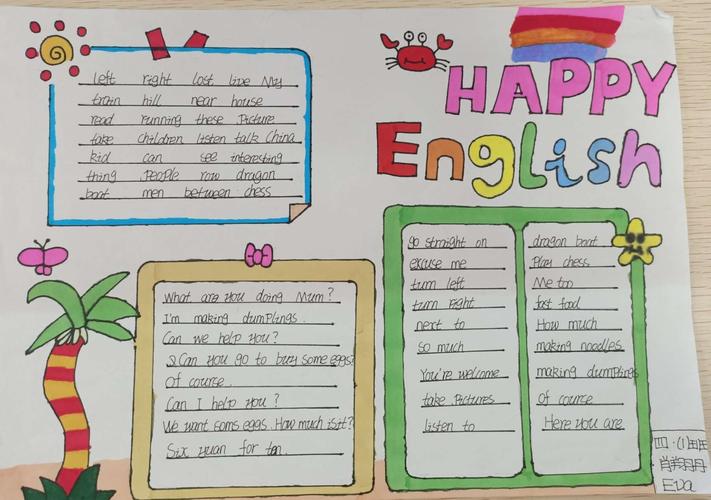 HAPPY
English
left right lost live My
train hill near house
read running these Picture
take children listen talk China
kid can see interesting
thing People row dragon
boat men between chess
What are you doing Mum?
I'm making dumplings.
Can we help you?
Can you go to buy some eggs?
Of course.
Can I help you?
We want soms eggs. How much isit?
Six yuan for ten.
go straight on
excuse me
turn left
turn right
next to
so much
You're welcome
take Pictures
listen to
dragon boat
Play chess
Me too
fast food
How much
making noodles
making dumplings
Of course
Here you are
四·(1)班
Eva